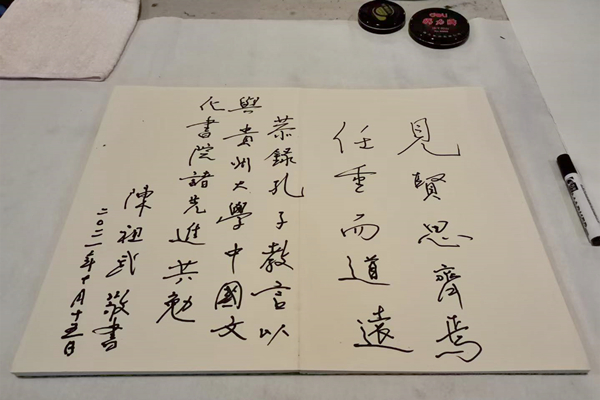 見賢思齊焉
任重而道遠
恭錄孔子教言以
與貴州大學中國文
化書院諸先進共勉
陳祖武敬書
二〇二一年十月十五日